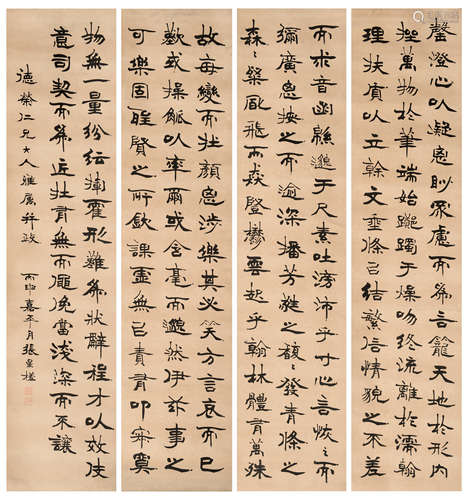 罄澄心以凝思眇眾慮而為言籠天地於形內
挫萬物於筆端始躑躅于燥吻終流離於濡翰
理扶質以立幹文垂條㠯結繁信情貌之不差
而求音函緜邈于尺素吐滂沛乎寸心言恢之而
彌廣思按之而逾深播芳蕤之馥〻發青條之
森〻粲風飛而猋豎鬱雲起乎翰林體有萬殊
故每變而在顏思涉樂其必笑方言哀而已
歎或操觚以率爾或含毫而邈然伊茲事之
可樂固聖賢之所欽課虛無㠯責有叩寂寞
物無一量紛紜揮霍形難為狀辭程才以效伎
意司契而為匠在有無而僶俛當淺深而不讓
德榮仁兄大人雅屬拜政
丙申嘉平月張星槎